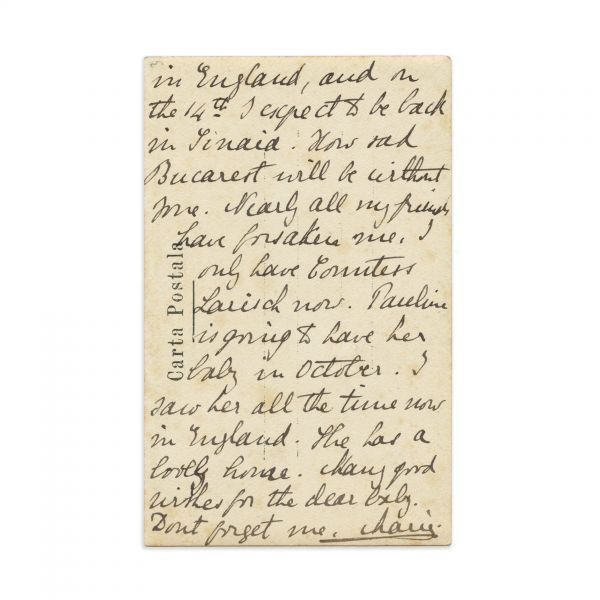 in England, and on
the 14th I expect to be back
in Sinaia. How sad
Bucarest will be without
me. Nearly all my friends
have forsaken me. I
only have Countess
Larisch now. Pauline
is going to have her
baby in October. I
saw her all the time now
in England. She has a
lovely home. Many good
wishes for the dear baby.
Dont forget me. Marie.
Carta Postala